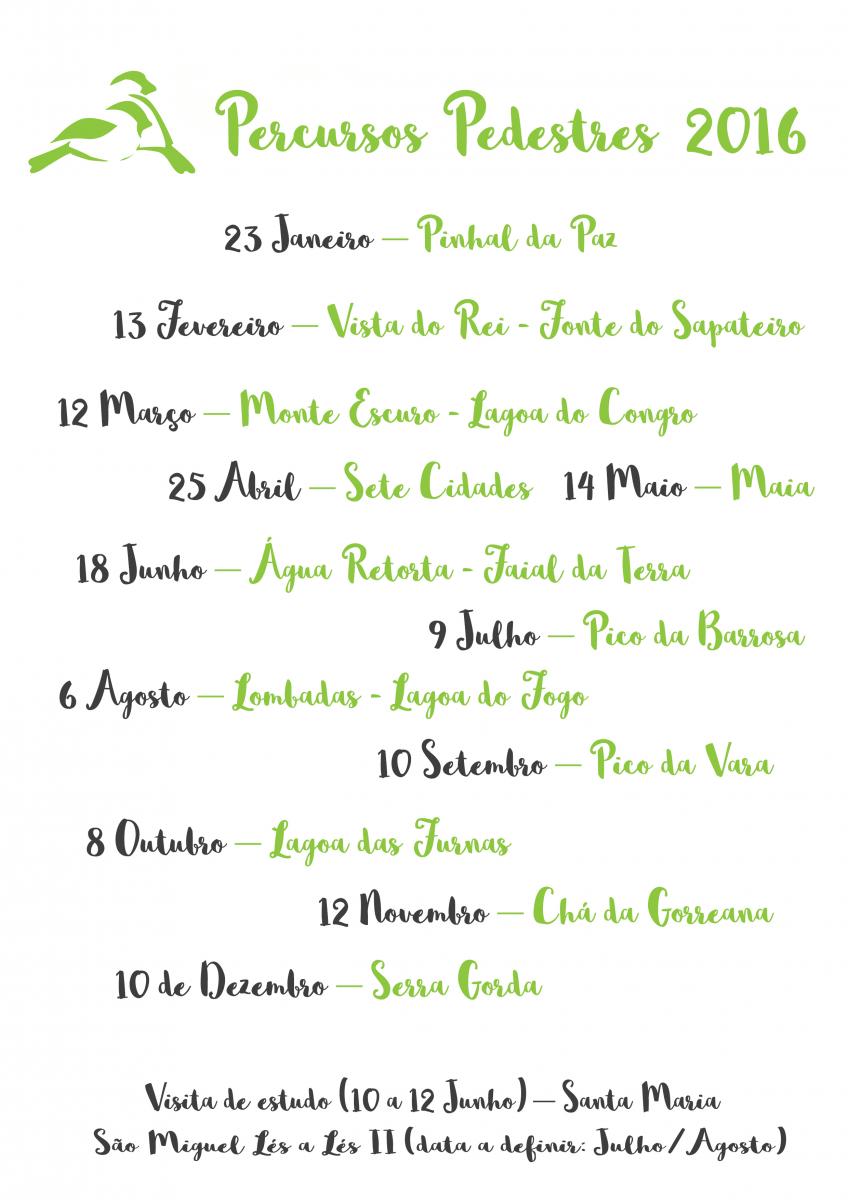 Percursos Pedestres 2016
23 Janeiro — Pinhal da Paz
13 Fevereiro — Vista do Rei - Fonte do Sapateiro
12 Março — Monte Escuro - Lagoa do Congro
25 Abril — Sete Cidades 14 Maio — Maia
18 Junho — Água Retorta - Faial da Terra
9 Julho — Pico da Barrosa
6 Agosto — Lombadas - Lagoa do Fogo
10 Setembro — Pico da Vara
8 Outubro — Lagoa das Furnas
12 Novembro — Chá da Gorreana
10 de Dezembro — Serra Gorda
Visita de estudo (10 a 12 Junho) — Santa Maria
São Miguel Lés a Lés II (data a definir: Julho/Agosto)